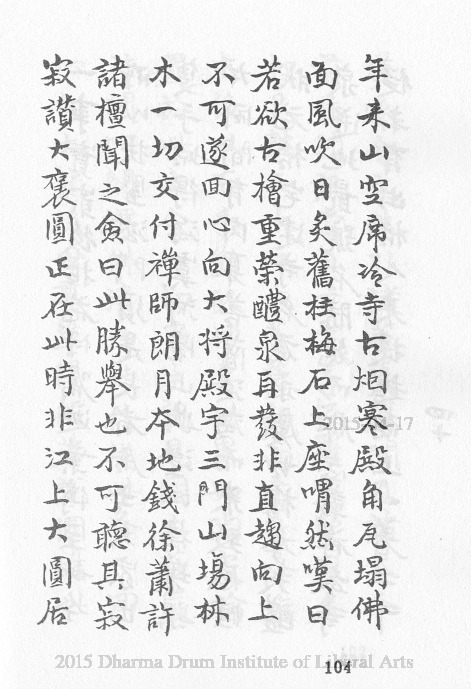 年来山空席冷寺古烟寒殿角瓦塌佛
面風吹日炙舊柱梅石上座喟然嘆曰
若欲古檜重榮醴泉再發非直趨向上
不可遂回心向大将殿宇三門山場林
木一切交付禅師朗月本地錢徐蕭許
諸檀聞之僉曰此勝舉也不可聽其寂
寂讚大褒圓正在此時非江上大圓居
2015 Dharma Drum Institute of Liberal Arts
104